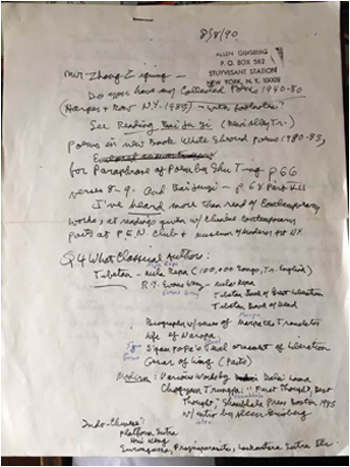 8/8/90
ALLEN GINSBERG
P.O. BOX 582
STUYVESANT STATION
NEW YORK, N.Y. 10009
Mr. Zhang Ziqing —
Do you have my Collected Poems 1940-80
(Harper & Row N.Y. 1985) — with footnotes?
See Reading Bai Juyi
Poems in new Book White Shroud Poems 1980-85,
for Paraphrase of Poem by Shu Ting p 66
verses 8-9. And Bai Juyi — p 68 Part VII
I've heard more than read of Contemporary
works, at readings given w/ Chinese Contemporary
poets at P.E.N. Club & Museum of Modern Art NY
Q 4 What Classical Author:
Tibetan — Mila Repa (100,000 Songs, Tr. English)
Tibetan Book of Great Liberation
Tibetan Book of Dead
Biography w/ songs of Marpa the Translator
Life of Naropa,
of Liberation
Modern: Various Works by Dalai Lama
Chogyam Trungpa: "First Thought, Best
Thought," Shambhala Press Boston 1985
w/ intro by Allen Ginsberg
Indo-Chinese:
Platform Sutra
Hui Neng
Surangama, Prajnaparamita, Lankavatara Sutra Etc.